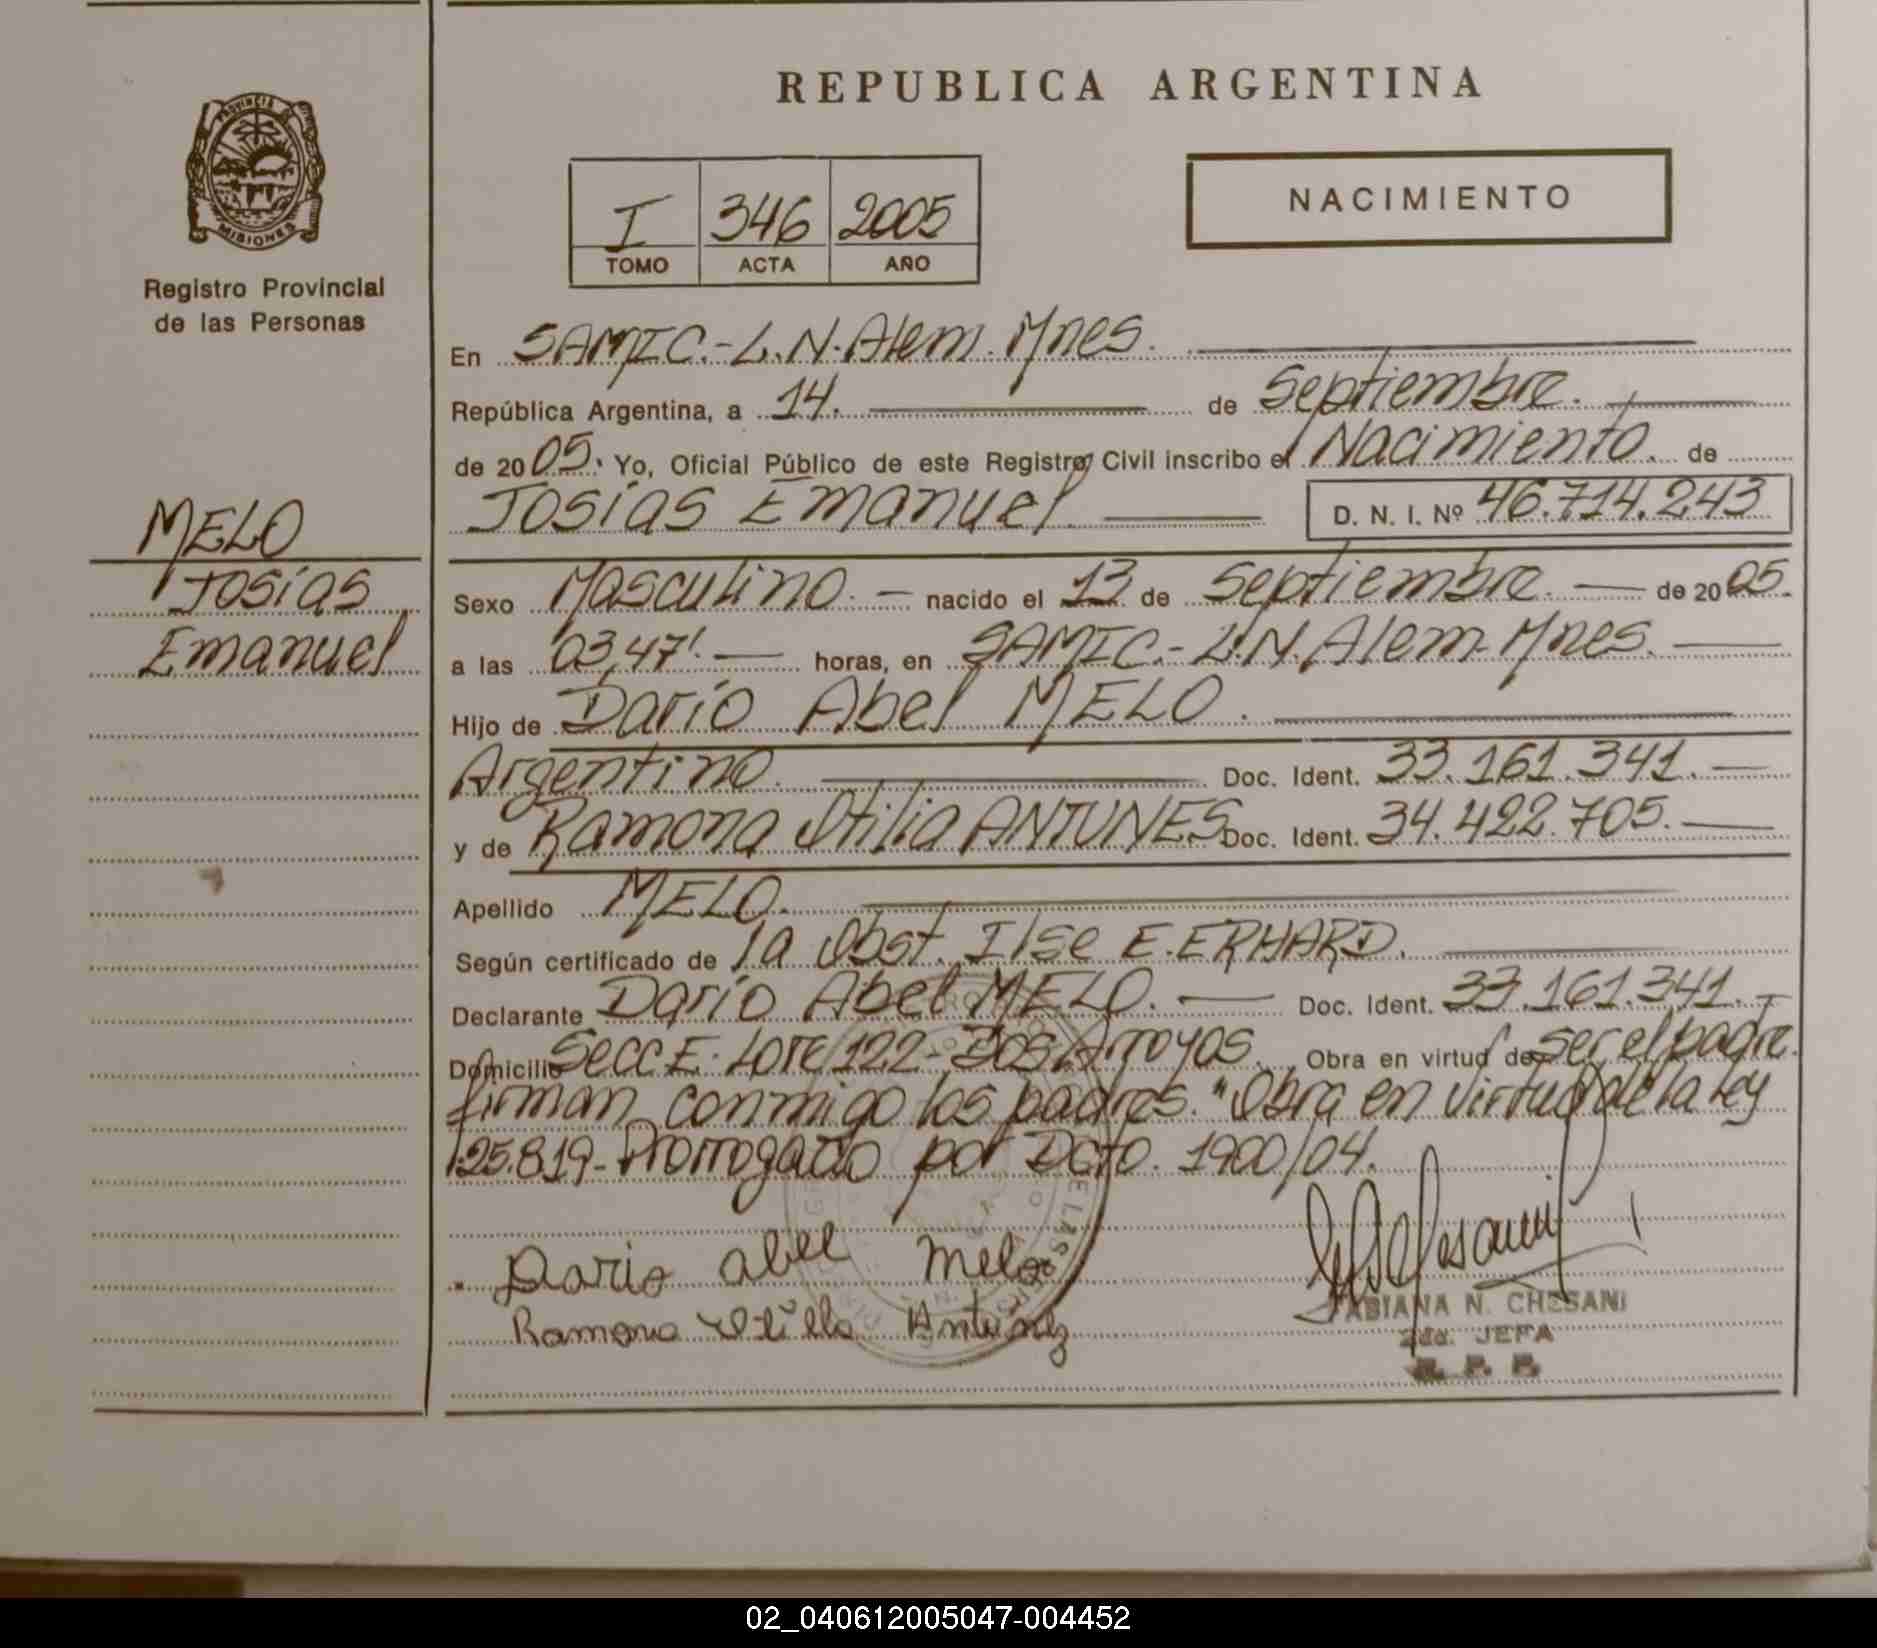 REPUBLICA ARGENTINA
PROVINCIA
MISIONES
Registro Provincial
de las Personas
I 346 2005
TOMO ACTA AÑO
NACIMIENTO
En SAMIC.-L.N.Alem.Mnes.
República Argentina, a 14. de Septiembre.
de 2005. Yo, Oficial Público de este Registro Civil inscribo el Nacimiento. de
Josías Emanuel D. N. I. Nº 46.714.243
MELO
Josías
Emanuel
Sexo Masculino. nacido el 13 de Septiembre. de 2005.
a las 03,47'. horas, en SAMIC.-L.N.Alem-Mnes.
Hijo de Darío Abel MELO.
Argentino. Doc. Ident. 33.161.341.
y de Ramona Otilia ANTUNES Doc. Ident. 34.422.705.
Apellido MELO.
Según certificado de la Obst. Ilse E. ERHARD.
Declarante Darío Abel MELO. Doc. Ident. 33.161.341.
Domicilio Secc E. Lote 122-Dos Arroyos. Obra en virtud de ser el padre.
firman conmigo los padres. "Obra en virtud de la ley
25.819-Prorrogado por Dcto. 1900/04.
Dario abel Melo
Ramona Antunez
FABIANA N. CHESANI
2da. JEFA
R. P. P.
02_040612005047-004452